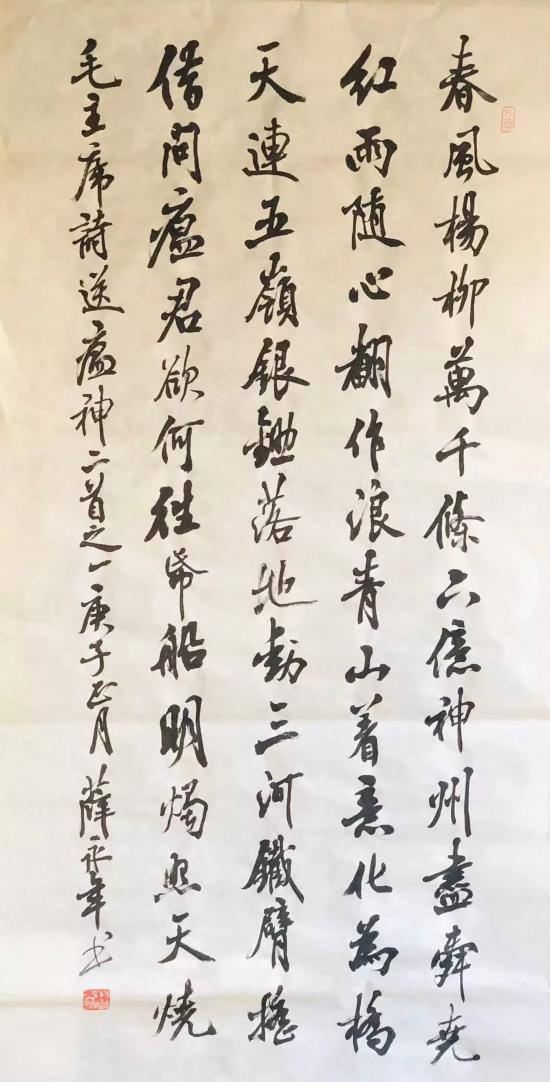 春風楊柳萬千條六億神州盡舜堯
紅雨隨心翻作浪青山着意化為橋
天連五嶺銀鋤落地動三河鐵臂搖
借問瘟君欲何往紙船明燭照天燒
毛主席詩送瘟神二首之一庚子正月薛永年书